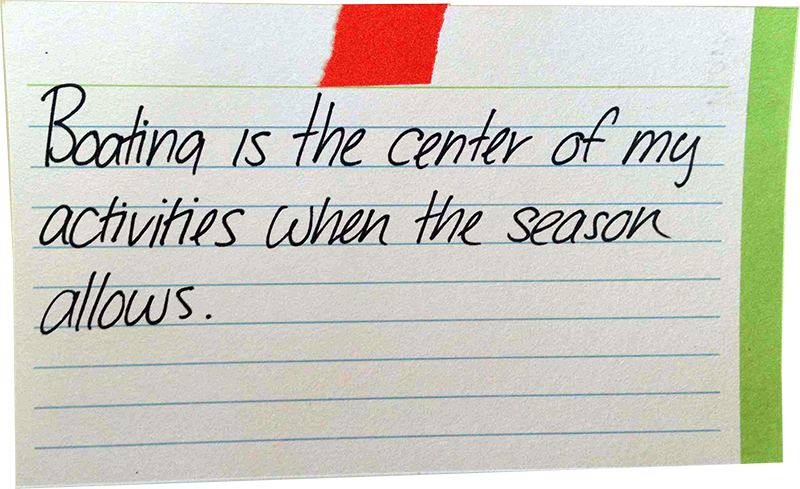 Boating is the center of my
activities when the season
allows.